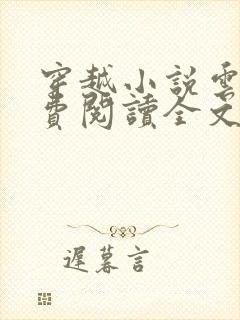 穿越小說雲
費閱讀全文
遲暮言